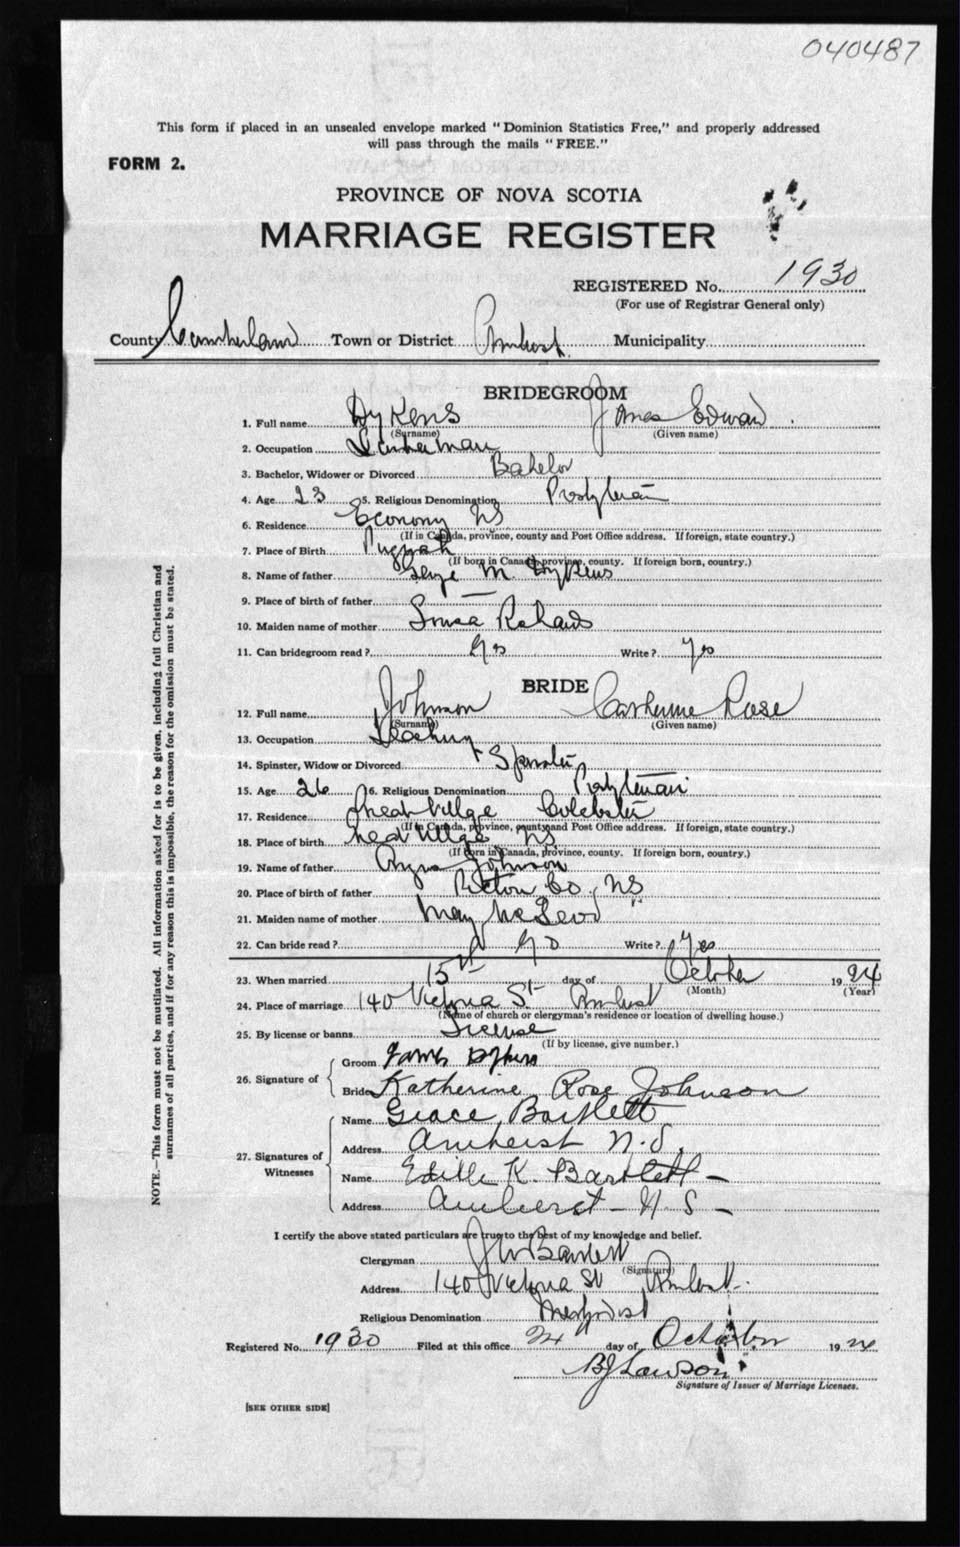 040487
This form if placed in an unsealed envelope marked "Dominion Statistics Free," and properly addressed
will pass through the mails "FREE."
FORM 2.
PROVINCE OF NOVA SCOTIA
MARRIAGE REGISTER
REGISTERED No. 1930
(For use of Registrar General only)
County Cumberland Town or District Amherst Municipality
BRIDEGROOM
1. Full name Dykens James Edward
(Surname) (Given name)
2. Occupation Lumberman
3. Bachelor, Widower or Divorced Bachelor
4. Age 23 5. Religious Denomination Presbyterian
6. Residence Economy NS
(If in Canada, province, county and Post Office address. If foreign, state country.)
7. Place of Birth Pugwash
(If born in Canada, province, county. If foreign born, country.)
8. Name of father George M. Dykens
9. Place of birth of father —
10. Maiden name of mother
11. Can bridegroom read? Yes Write? Yes
BRIDE
12. Full name Johnson Catherine Rose
(Surname) (Given name)
13. Occupation Teaching
14. Spinster, Widow or Divorced Spinster
15. Age 26 6. Religious Denomination Presbyterian
17. Residence Colchester
(If in Canada, province, county and Post Office address. If foreign, state country.)
18. Place of birth NS
(If born in Canada, province, county. If foreign born, country.)
19. Name of father Johnson
20. Place of birth of father Pictou Co. NS
21. Maiden name of mother May McLeod
22. Can bride read? Yes Write? Yes
23. When married 15th day of October 1924
(Month) (Year)
24. Place of marriage 140 Victoria St Amherst
(Name of church or clergyman's residence or location of dwelling house.)
25. By license or banns License
(If by license, give number.)
26. Signature of
Groom James Dykens
Bride Katherine Rose Johnson
27. Signatures of Witnesses
Name Grace Bartlett
Address Amherst N.S.
Name Edith K. Bartlett
Address Amherst - N. S -
I certify the above stated particulars are true to the best of my knowledge and belief.
Clergyman J W Bartlett
(Signature)
Address 140 Victoria St Amherst.
Religious Denomination Methodist
Registered No. 1930 Filed at this office 24 day of October 1924
BJ Lawson
Signature of Issuer of Marriage Licenses.
[SEE OTHER SIDE]
NOTE.—This form must not be mutilated. All information asked for is to be given, including full Christian and
surnames of all parties, and if for any reason this is impossible, the reason for the omission must be stated.